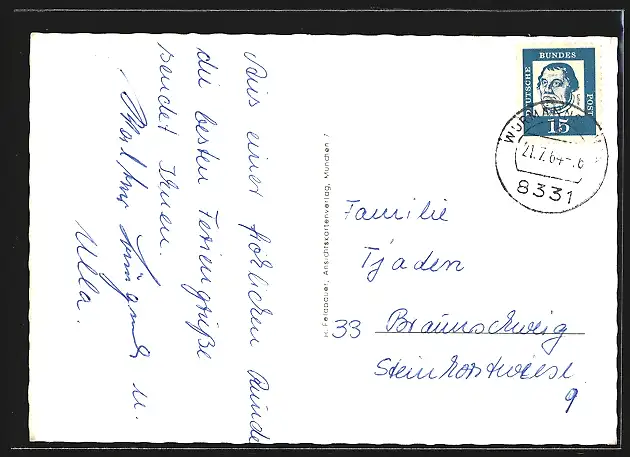 Aus einer fröhlichen Runde
die besten Feriengrüße
sendet Ihnen.
u.
Ulla.
H. Feldbauer, Ansichtskartenverlag, München 7
DEUTSCHE
BUNDES
POST
15
21.7.64
8331
Familie
Tjaden
33 Braunschweig
Steinhorstwiese
9